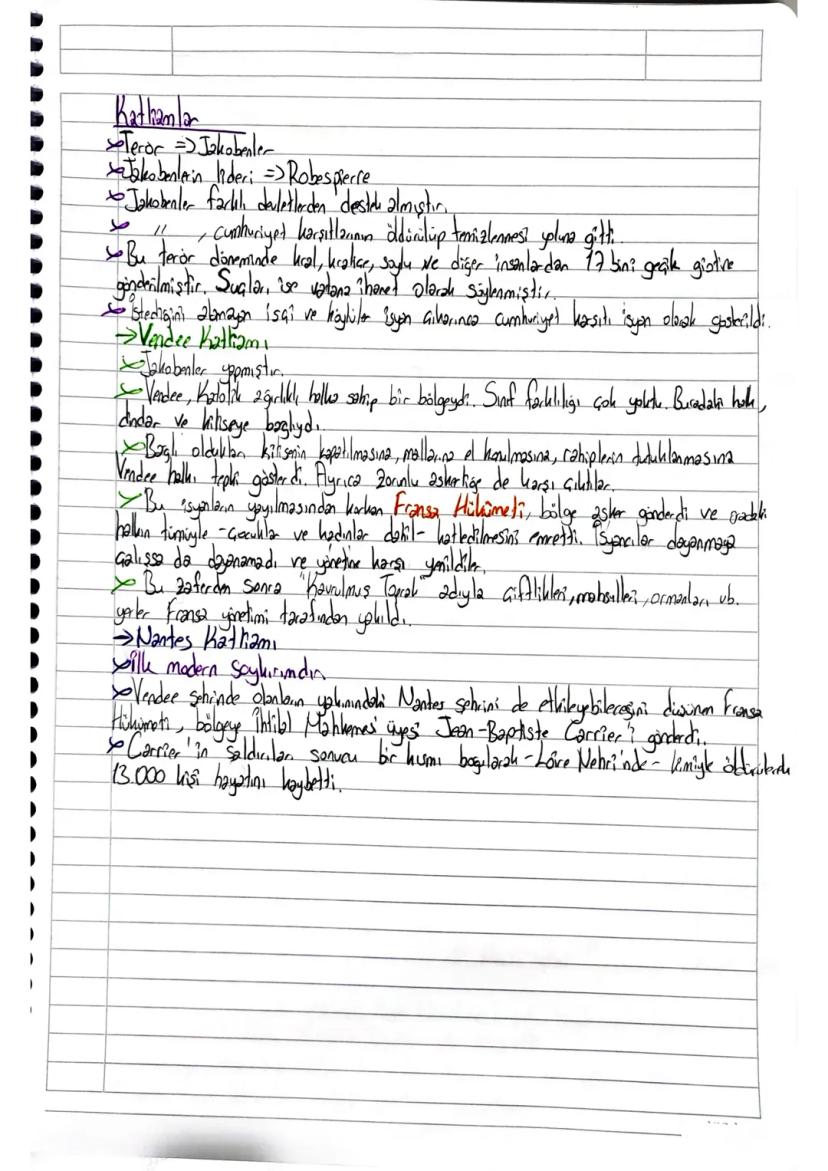 Katliamlar
Terör => Jakobenler
Jakobenlerin lideri => Robespierre
Jakobenler farklı devletlerden destek almıştır.
" , cumhuriyet karşıtlarının öldürülüp temizlenmesi yoluna gitti.
Bu terör döneminde kral, kraliçe, soylu ve diğer insanlardan 17 bini geçik giotine
gönderilmiştir. Suçları ise vatana ihanet olarak söylenmiştir.
İstediğini alamayan işçi ve köylüler isyan çıkarınca cumhuriyet karşıtı isyan olarak gösterildi.
→Vendee Katliamı
Jakobenler yapmıştır.
Vendee, Katolik ağırlıklı halka sahip bir bölgeydi. Sınıf farklılığı çok yoktu. Buradaki halk,
dindar ve kiliseye bağlıydı.
Bağlı oldukları kilisenin kapatılmasına, mallarına el konulmasına, rahiplerin tutuklanmasına
Vendee halkı tepki gösterdi. Ayrıca zorunlu askerliğe de karşı çıktılar.
Bu isyanların yayılmasından korkan Fransa Hükümeti, bölge asker gönderdi ve oradaki
halkın tümüyle -çocuklar ve kadınlar dahil- katledilmesini emretti. İsyancılar dayanmaya
çalışsa da dayanamadı ve yönetime karşı yenildiler.
Bu zaferden sonra "Kavrulmuş Toprak" adıyla çiftlikleri, mahsulleri, ormanları vb.
yerler Fransa yönetimi tarafından yakıldı.
→Nantes Katliamı
İlk modern soykırımdır.
Vendee şehrinde olanların yakınındaki Nantes şehrini de etkileyebileceğini düşünen Fransa
Hükümeti, bölgeye İhtilal Mahkemesi üyesi Jean-Baptiste Carrier'i gönderdi.
Carrier'in saldırıları sonucu bir kısmı boğularak -Loire Nehri'nde- kimiyle öldürülerek
13.000 kişi hayatını kaybetti.